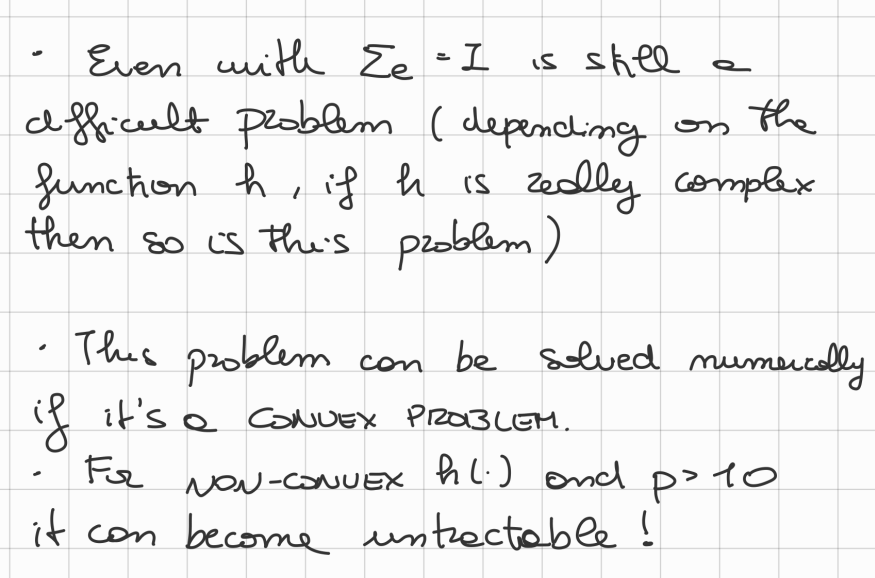 · Even with Σe = I is still a
difficult problem (depending on the
function h, if h is really complex
then so is this problem)
· This problem can be solved numerically
if it's a CONVEX PROBLEM.
· For NON-CONVEX h(·) and p>10
it can become untractable!